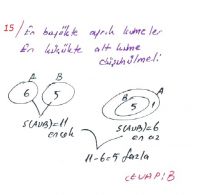 15/ En büyükte ayrık kümeler
En küçükte alt küme
düşünülmeli
A B
6 5
B A
5 1
S(AUB)=11
en çok
S(AUB)=6
en az
11-6=5 fazla
CEVAP: B